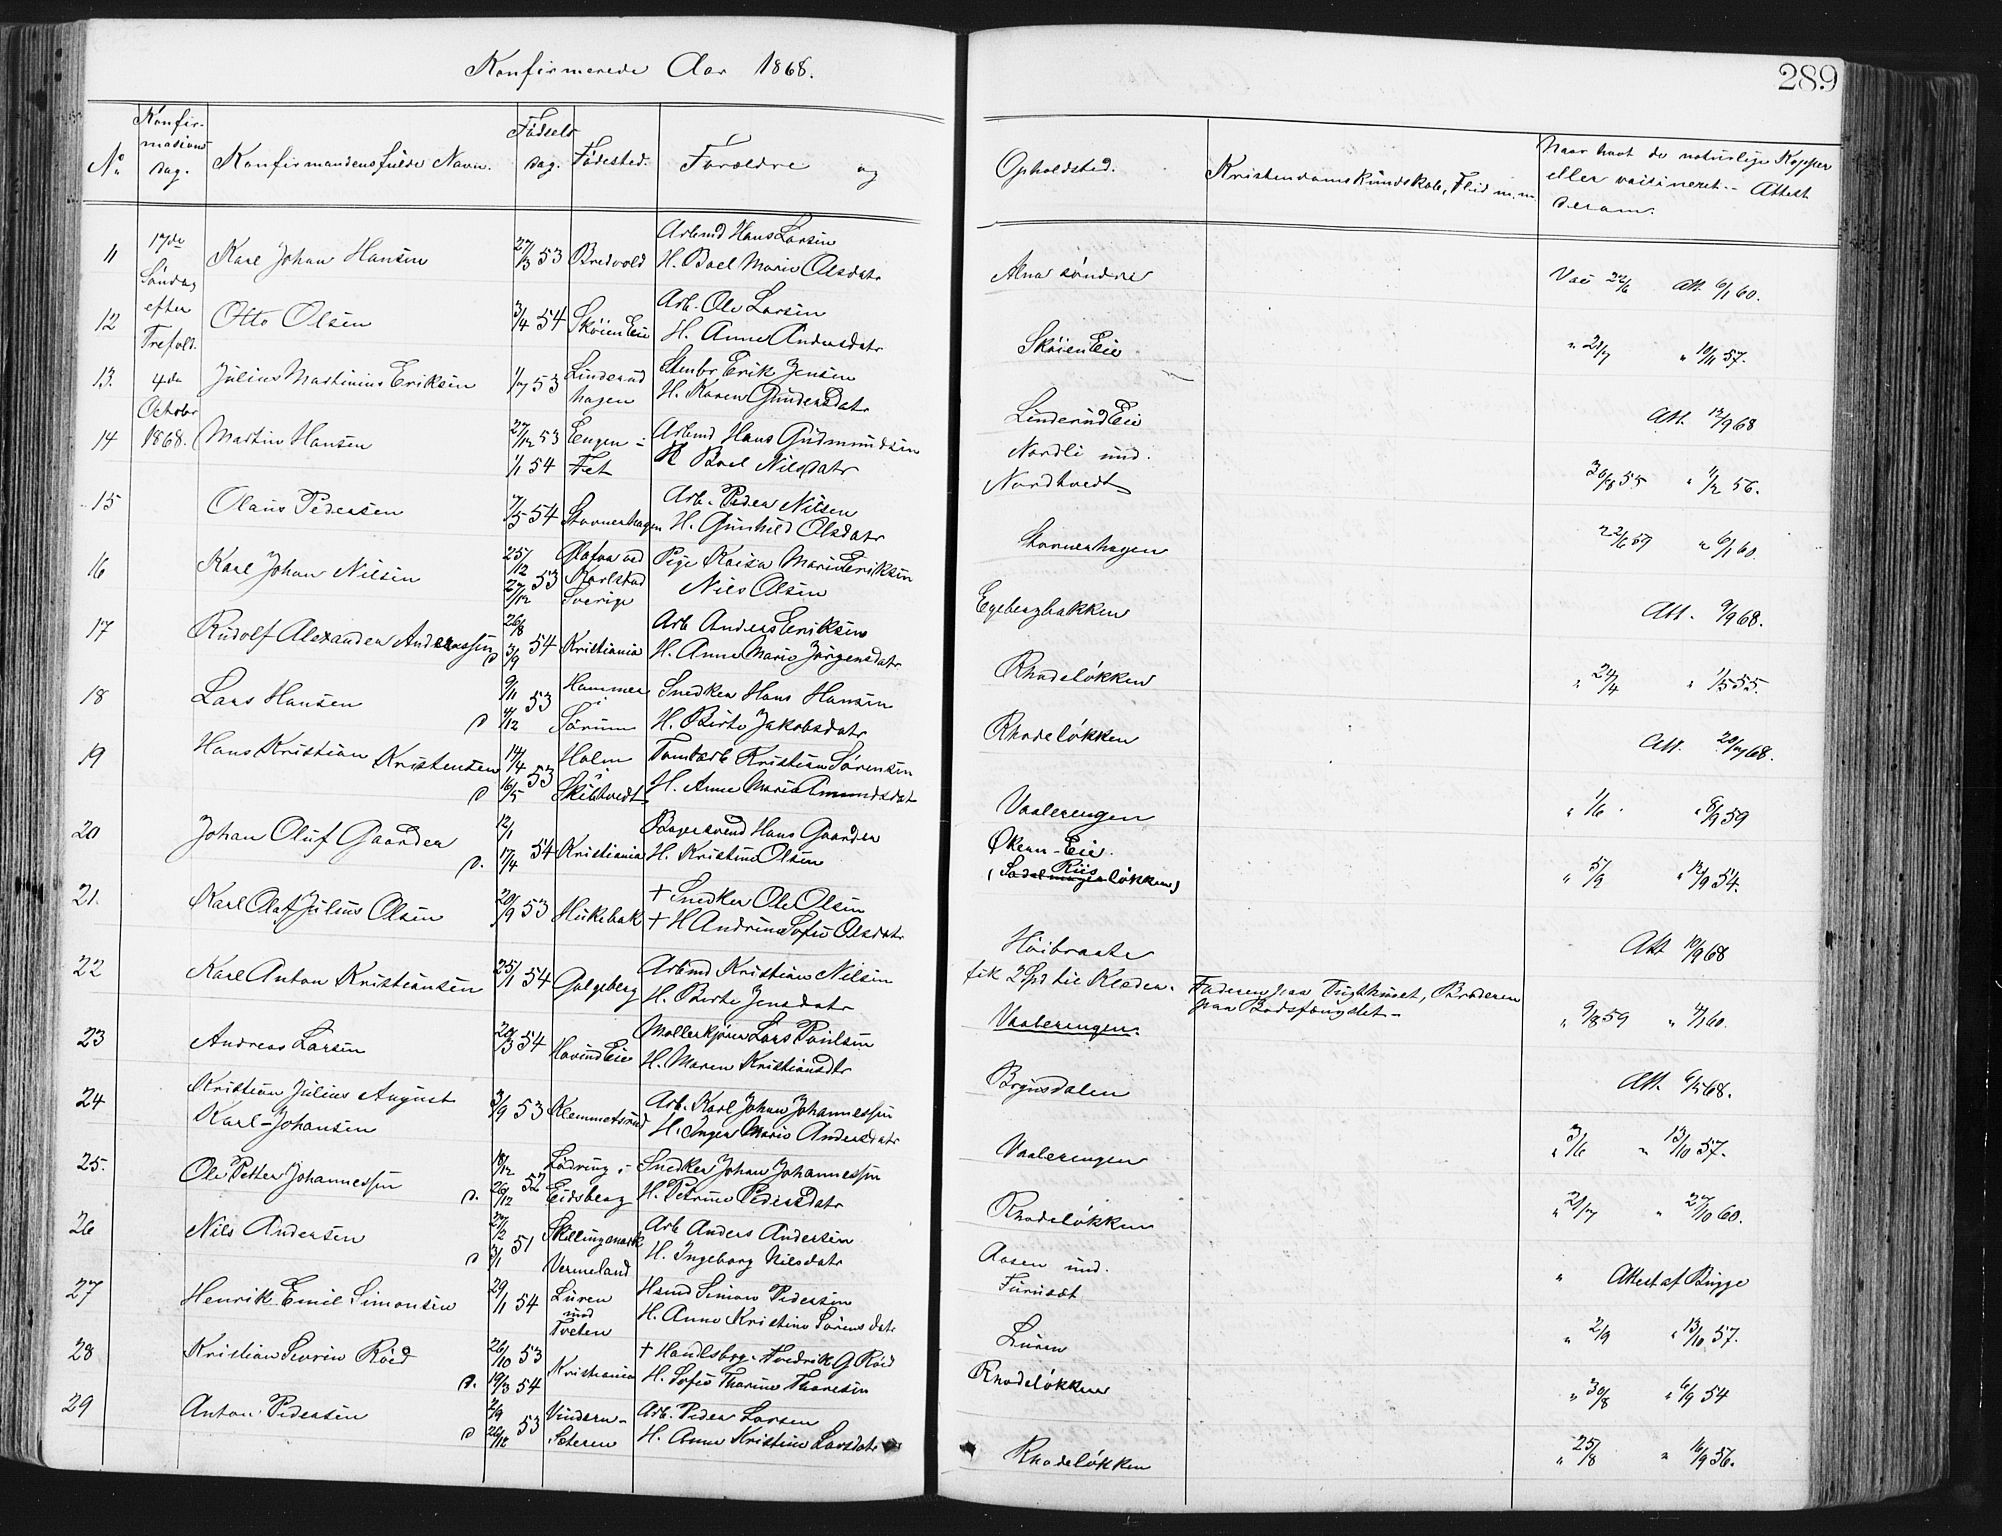 Konfirmerede Aar 1868.
289
No
Konfir-
mations
dag.
Konfirmandens fulde Navn.
Fødsels
dag.
Fødested.
Forældre og
Opholdsted.
Kristendomskundskab, Flid m.m.
Naar havt de naturlige Kopper
eller vaksineret - Attest
derom.
17de
Søndag
efter
Trefold.
4de
October
1868.
11 Karl Johan Hansen 27/3 53 Bredvold
Arbmd Hans Larsen
H. Boel Marie Olsdatr
Alna søndre
Vac 22/6 Att. 6/1 60.
12 Otto Olsen 3/4 54 Skøien Eie
Arb. Ole Larsen
H. Anne Andersdatr
Skøien Eie
" 21/7 " 10/11 57.
13. Julius Martinius Eriksen 1/7 53 Linderud
hagen
Stenbr Erik Jensen
H. Karen Gundersdatr
Linderud Eie
Att. 12/9 68
14 Martin Hansen 27/12 53 Eengen i
1/1 54 Fet
Arbmd Hans Gudmundsen
H Boel Nilsdatr
Nordli und.
Nordtvedt
30/8 55 " 1/2 56.
15 Olaus Pedersen 7/5 54 Stovnerhagen
Arb. Peder Nilsen
H. Gunhild Olsdatr
Stovnerhagen
22/6 59 " 6/1 60.
16 Karl Johan Nilsen 25/12 53
27/12
Karlstad
Sverige
Pige Kaisa Marie Eriksen
Nils Olsen
Egebergbakken
Att. 9/9 68.
17 Rudolf Alexander Anderssen 26/8 54 Kristiania
D 3/9
Arb Anders Eriksen
H. Anne Marie Jørgensdatr
Rhodeløkken
" 24/4 " 1/5 55.
18 Lars Hansen 9/11 53 Hammer
D 4/12 i Sørum
Snedker Hans Hansen
H. Birte Jakobsdatr
Rhodeløkken
Att. 20/7 68.
19 Hans Kristian Kristensen 14/4 53 Holm
D 16/5 i Skibtvedt
Tomtarb Kristian Sørensen
H. Anne Marie Amundsdat
Vaalerengen
" 1/6 " 8/9 59
20 Johan Oluf Gaarder 12/1 54 Kristiania
D. 17/4
Bagersvend Hans Gaarder
H. Kristine Olsen
Økern-Eie.
(Sadelmager Riisløkken)
" 5/9 " 12/9 54.
21. Karl Olaf Julius Olsen 20/9 53 Hukebak
+ Snedker Ole Olsen
+ H Andrine Sofie Olsdatr
Høibraate
Att 10/9 68
22 Karl Anton Kristiansen 25/1 54 Galgeberg
Arbmd Kristian Nilsen
H. Birte Jensdatr
fik 2 Spd til Klæder.
Vaalerengen.
Faderen paa Tugthuset, Broderen
paa Bodsfængslet -
" 9/8 59 " 4/1 60.
23 Andreas Larsen 20/3 54 Hovind Eie
Møllerkjører Lars Paulsen
H. Maren Kristiansdtr
Brynsdalen
Att. 6/5 68.
24 Kristian Julius August
Karl-Johansen 3/9 53 Klemmetsrud
Arb. Karl Johan Johannessen
H. Inger Marie Andersdatr
Vaalerengen
" 3/6 " 13/10 57.
25. Ole Petter Johannessen 18/12 52
D. 26/12 Eidsberg
Snedker Johan Johannessen
H. Petrine Pedersdatr
Rhodeløkken
" 21/7 " 27/10 60.
26 Nils Andersen 27/2 51 Skillingmark
D 3/1 Vermeland
Arb Anders Andersen
H. Ingeborg Nilsdatr
Aasen und.
Furuset
" Attest af Bugge
27 Henrik Emil Simonsen 29/1 54 Luren
und
Tveten
Hsmd Simon Pedersen
H. Anne Kristine Sørensdatr
Luren
" 2/9 " 13/10 57.
28 Kristian Severin Röed 26/10 53 Kristiania
D. 19/3 54
+ Handlsbog. Fredrik G Röed
H. Sofie Thorine Thoresen
Rhodeløkken
" 30/8 " 6/9 54
29 Anton Pedersen 2/9 53 Vindern-
D 26/12 Seteren
Arb. Peder Larsen
H. Anne Kristine Larsdatr
Rhodeløkken
" 25/8 " 16/9 56.